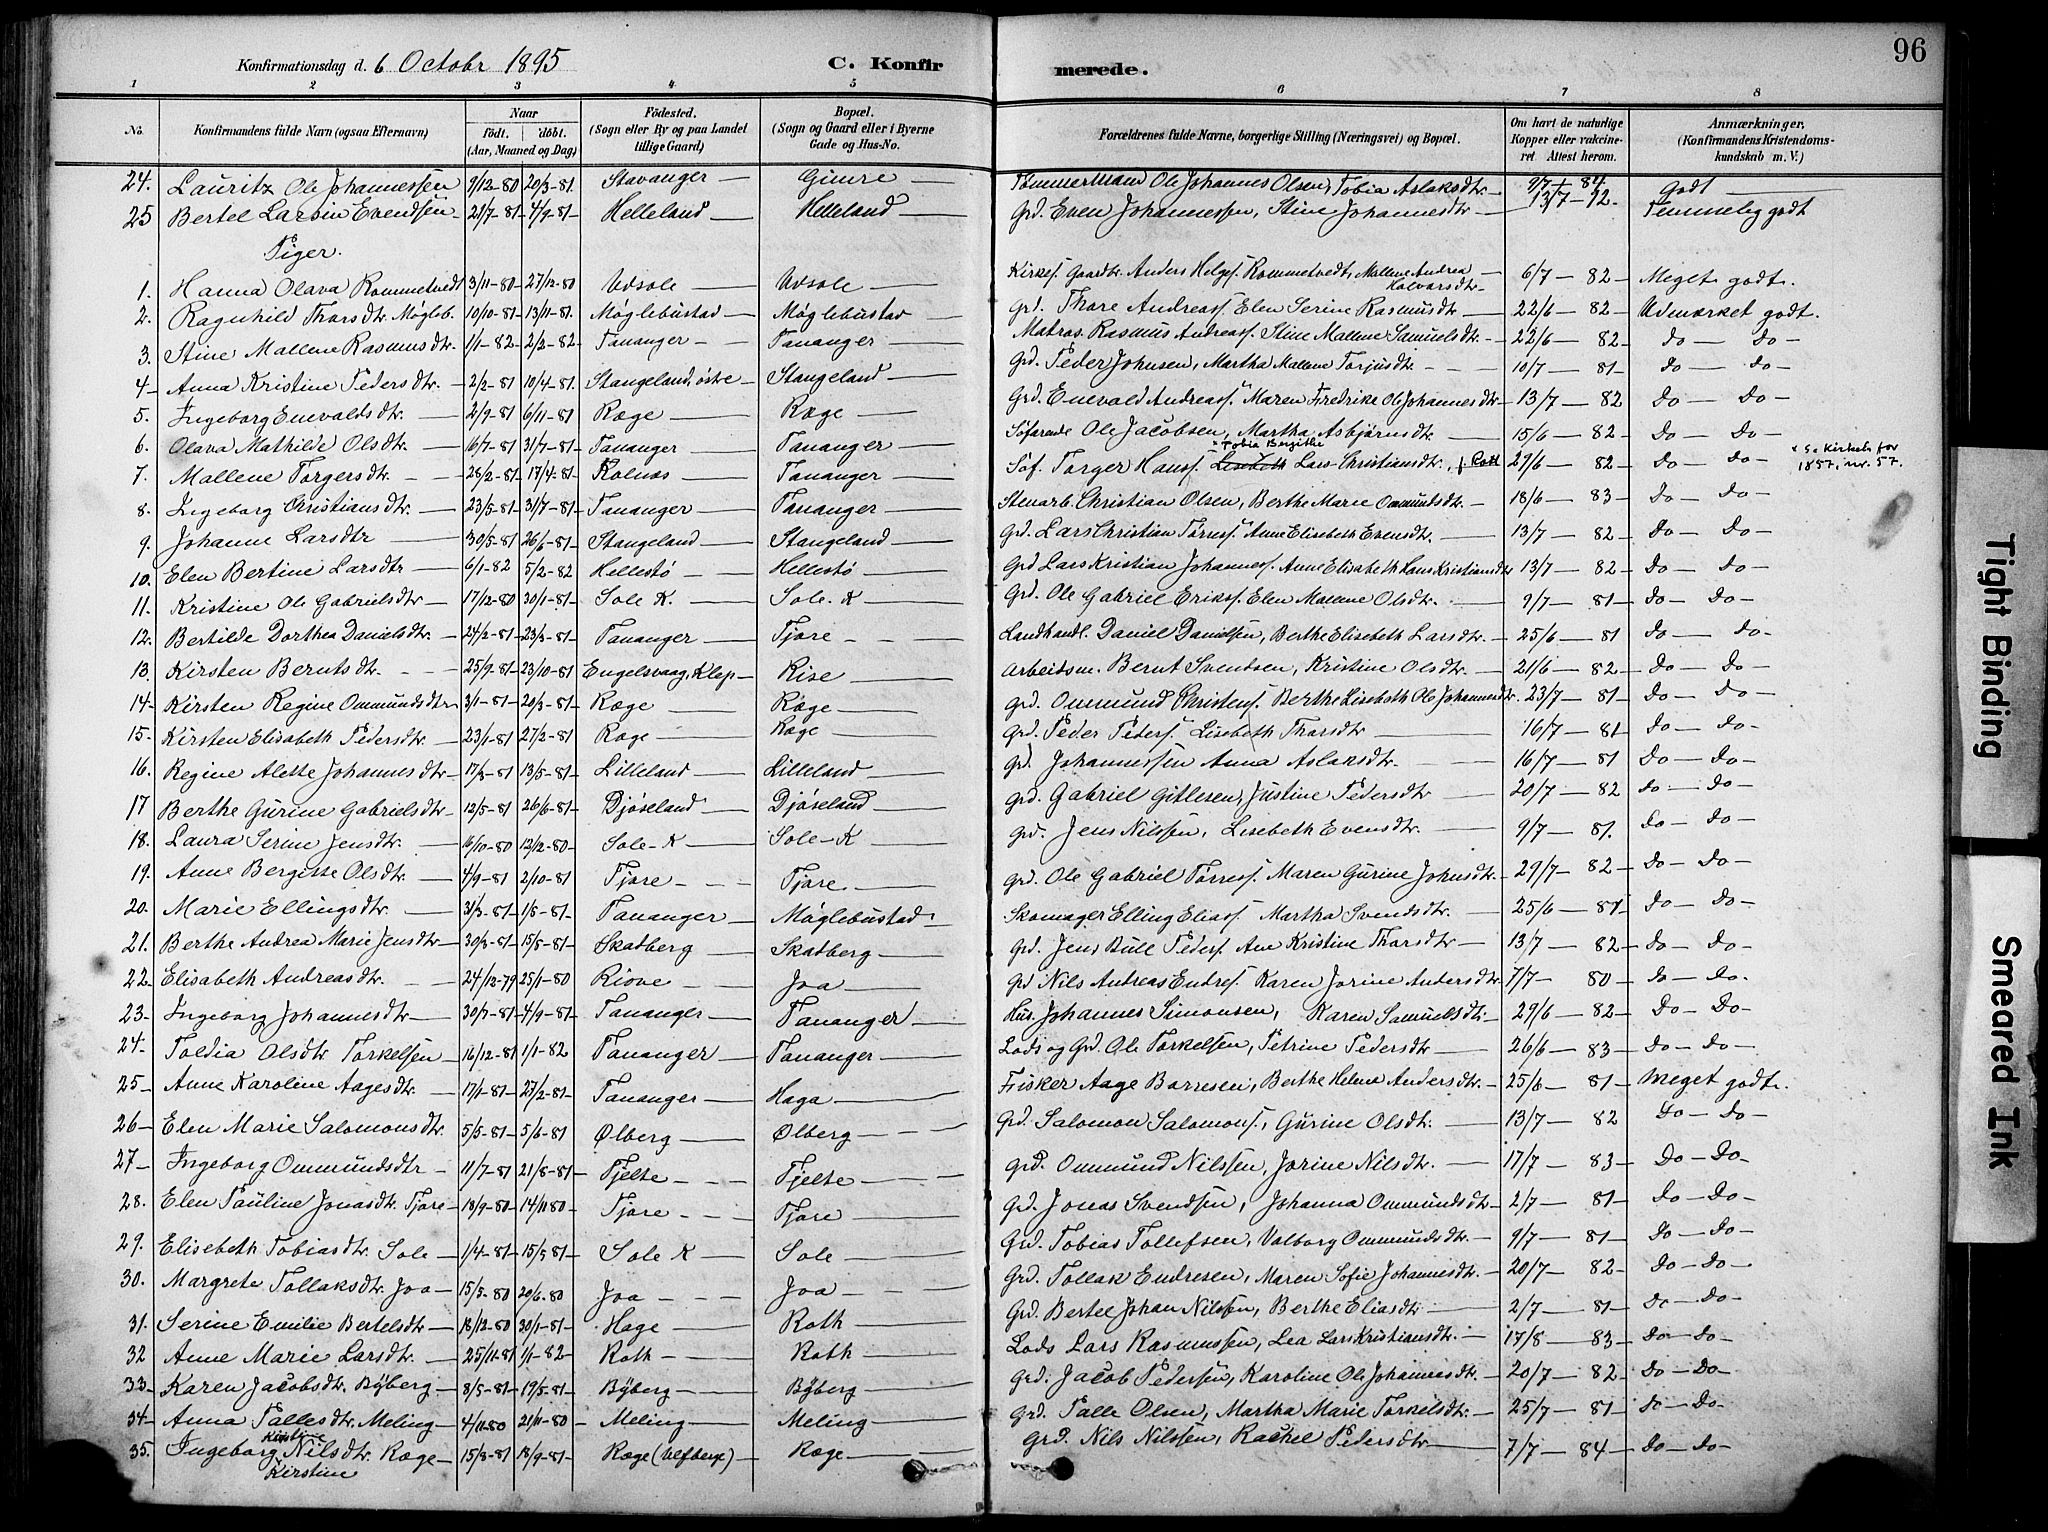 96
Konfirmationsdag d. 6 Octobr 1895 C. Konfirmerede.
1 2 3 4 5 6 7 8
No. Konfirmandens fulde Navn (ogsaa Efternavn) Naar født. døbt. (Aar, Maaned og Dag) Fødested. (Sogn eller By og paa Landet tillige Gaard) Bopæl. (Sogn og Gaard eller i Byerne Gade og Hus-No. Forældrenes fulde Navne, borgerlige Stilling (Næringsvei) og Bopæl. Om havt de naturlige Kopper eller vakcineret. Attest herom. Anmærkninger. (Konfirmandens Kristendomskundskab m. V.)
24. Lauritz Ole Johannessen 9/12-80 20/3-81 Stavanger Gimre Tømmermand Ole Johannes Olsen, Tobia Aslaksdtr. 9/7 - 84 Godt
25 Bertel Larsin Evendsen 21/7-81 4/9-81 Helleland Helleland Grd. Even Johannessen, Stine Johannesdtr 13/7 - 92. Temmelig godt
Piger.
1. Hanna Olava Rommetvedt 3/11-80 27/12-80 Udsole Udsole Kirkes. Gaardbr. Anders Helges. Rommetvedt, Mallene Andrea Halvorsdtr. 6/7 - 82 Meget godt.
2. Ragnhild Thorsdtr. Mögleb. 10/10-81 13/11-81 Møglebustad Møglebustad Grd. Thore Andreass. Elen Serine Rasmusdtr 22/6 - 82 Udmærket godt.
3. Stine Mallene Rasmusdtr. 1/1-82 2/2-82 Tananger Tananger Matros. Rasmus Andreass. Stine Mallene Samuelsdtr. 22/6 - 82 do - do
4 Anna Kristine Pedersdtr. 2/2-81 10/4-81 Stangeland, østre Stangeland Grd. Peder Johnsen, Martha Mallene Torjusdtr 10/7 - 81 do - do
5. Ingeborg Enevaldsdtr. 2/9-81 6/11-81 Ræge Ræge Grd. Enevald Andreass. Maren Fredrike Ole Johannesdtr 13/7 - 82 Do - Do
6. Olava Mathilde Olsdtr. 16/7-81 31/7-81 Tananger Tananger Søfarende Ole Jacobsen, Martha Asbjørnsdtr 15/6 - 82 Do - Do
7. Mallene Torgersdtr. 28/2-81 17/4-81 Kolnæs Tananger Søf. Torger Hanss. Lisebeth × Tobia Bergithe Lars Christiansdtr., f. Rott 29/6 - 82 Do - Do × Se Kirkeb. for 1857, nr. 57.
8. Ingeborg Christiansdtr. 23/5-81 31/7-81 Tananger Tananger Stenarb. Christian Olsen, Berthe Marie Ommundsdtr. 18/6 - 83 Do - Do
9. Johanne Larsdtr 30/5-81 26/6-81 Stangeland Stangeland Grd. Lars Christian Tørress. Anne Elisebeth Evensdtr. 13/7 - 82 Do - Do
10. Elen Bertine Larsdtr 6/1-82 5/2-82 Hellestø Hellestø Grd Lars Kristian Johanness. Anne Elisabeth Hans Kristiansdtr 13/7 - 82 Do - Do
11. Kristine Ole Gabrielsdtr 17/12-80 30/1-81 Sole K. Sole. K Grd. Ole Gabriel Erikss. Elen Mallene Olsdtr. 9/7 - 81 Do - Do
12. Bertilde Dorthea Danielsdtr. 24/2-81 23/3-81 Tananger Tjore Landhandl. Daniel Danielsen, Berthe Elisebeth Larsdtr. 25/6 - 81 Do - Do
13. Kirsten Berntsdtr. 25/9-81 23/10-81 Engelsvaag, Klep Rise Arbeidsm. Bernt Svendsen, Kristine Olsdtr. 21/6 - 82 Do - Do
14 Kirsten Regine Ommundsdtr 3/1-81 20/3-81 Ræge Ræge Grd. Ommund Christens. Berthe Lisebeth Ole Johannesdtr. 23/7 - 81 Do - Do
15. Kirsten Elisabeth Pedersdtr. 23/1-81 27/2-81 Ræge Ræge Grd. Peder Peders. Lisebeth Thorsdtr 16/7 - 81 Do - Do
16. Regine Alette Johannesdtr 17/3-81 13/5-81 Lilleland Lilleland Grd. Johannessen Anna Aslaksdtr. 16/7 - 81 Do - Do
17 Berthe Gurine Gabrielsdtr 12/5-81 26/6-81 Djøseland Djøseland Grd. Gabriel Gitlesen, Justine Pedersdtr 20/7 - 82 do - do
18. Laura Serine Jensdtr. 16/10-80 12/2-80 Sole-K Sole-K Grd. Jens Nilssen, Lisebeth Evensdtr. 9/7 - 81. Do - Do
19. Anne Bergitte Olsdtr. 4/9-81 2/10-81 Tjore Tjore Grd. Ole Gabriel Tørress. Maren Gurine Johnsdtr. 29/7 - 82 Do - Do
20. Marie Ellingsdtr. 3/3-81 1/5-81 Tananger Møglebustad Skomager Elling Eliass. Martha Svendsdtr. 25/6 - 81 Do - Do
21. Berthe Andrea Marie Jensdtr 30/3-81 15/5-81 Skatberg Skatberg Grd. Jens Bull Peders. Ane Kristine Thorsdtr 13/7 - 82 Do - Do
22. Elisabeth Andreasdtr. 24/12-79 25/1-80 Riove Joa Grd Nils Andreas Endres. Karen Jorine Andersdtr 7/7 - 80 Do - Do.
23. Ingeborg Johannesdtr 30/7-81 4/9-81 Tananger Tananger Hus. Johannes Simonsen, Karen Samuelsdtr. 29/6 - 82 Do - Do
24 Toldia Olsdtr Torkelsen 16/12-81 1/1-82 Tananger Tananger Lods og Grd. Ole Torkelsen, Petrine Pedersdtr 26/6 - 83 Do - Do
25 Anne Karoline Aagesdtr. 17/1-81 27/2-81 Tananger Haga Fisker Aage Barresen, Berthe Helena Andersdtr. 25/6 - 81 Meget godt.
26 Elen Marie Salomonsdtr. 5/5-81 5/6-81 Ølberg Ølberg Grd. Salomon Salomons., Gurine Olsdtr. 13/7 - 82 Do - Do
27 Ingeborg Ommundsdtr 11/7-81 21/8-81 Tjelte Tjelte Grd. Ommund Nilssen, Jorine Nilsdtr. 17/7 - 83 Do - Do
28. Elen Pauline Jonasdtr. Tjore 18/9-80 14/11 80 Tjore Tjore Grd. Jonas Svendsen, Johanna Ommundsdtr 2/7 - 81 Do - Do
29. Elisebeth Tobiasdtr. Sole 1/4-81 15/5 81 Sole K Sole Grd. Tobias Tollefsen, Valborg Ommundsdtr. 9/7 - 81 Do - Do
30. Margrete Tollaksdtr. Joa 15/5-80 20/6-80 Joa Joa Grd. Tollak Endresen, Maren Sofie Johannesdtr. 20/7 - 82 Do - Do
31. Serine Emilie Bertelsdtr 18/12-80 30/1-81 Hage Roth Grd. Bertel Johan Nilssen, Berthe Eliasdtr 2/7 - 81 Do - Do
32 Anne Marie Larsdtr. 25/11-81 1/1-82 Roth Roth Lods Lars Rasmussen, Lea Lars Kristiansdtr. 17/8 - 83 Do - Do
33 Karen Jacobsdtr. Byberg 8/5-81 19/5-81 Byberg Byberg Grd. Jacob Pedersen, Karoline Ole Johannesdtr. 20/7 - 82 Do - Do
34 Anna Pallesdtr. Meling 4/11-80 21/11-80 Meling Meling Grd. Palle Olsen, Martha Marie Torkelsdtr. 25/7 - 81 Do - Do
35. Ingeborg Kirstine Nilsdtr. Ræge 15/8-81 18/9-81 Ræge (Ulfberge) Ræge Grd. Nils Nilssen, Rachel Pedersdtr 7/7 - 84 Do - Do
Kirstine
Tight Binding
Smeared Ink